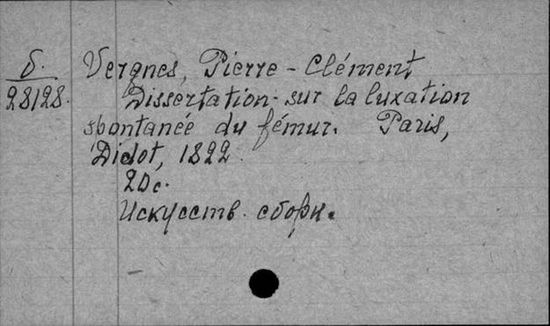 б.
28128.
Vergnes, Pierre - Clément
Dissertation sur la luxation
spontanée du fémur. Paris,
Didot, 1822.
20 с.
Искусств. сборн.